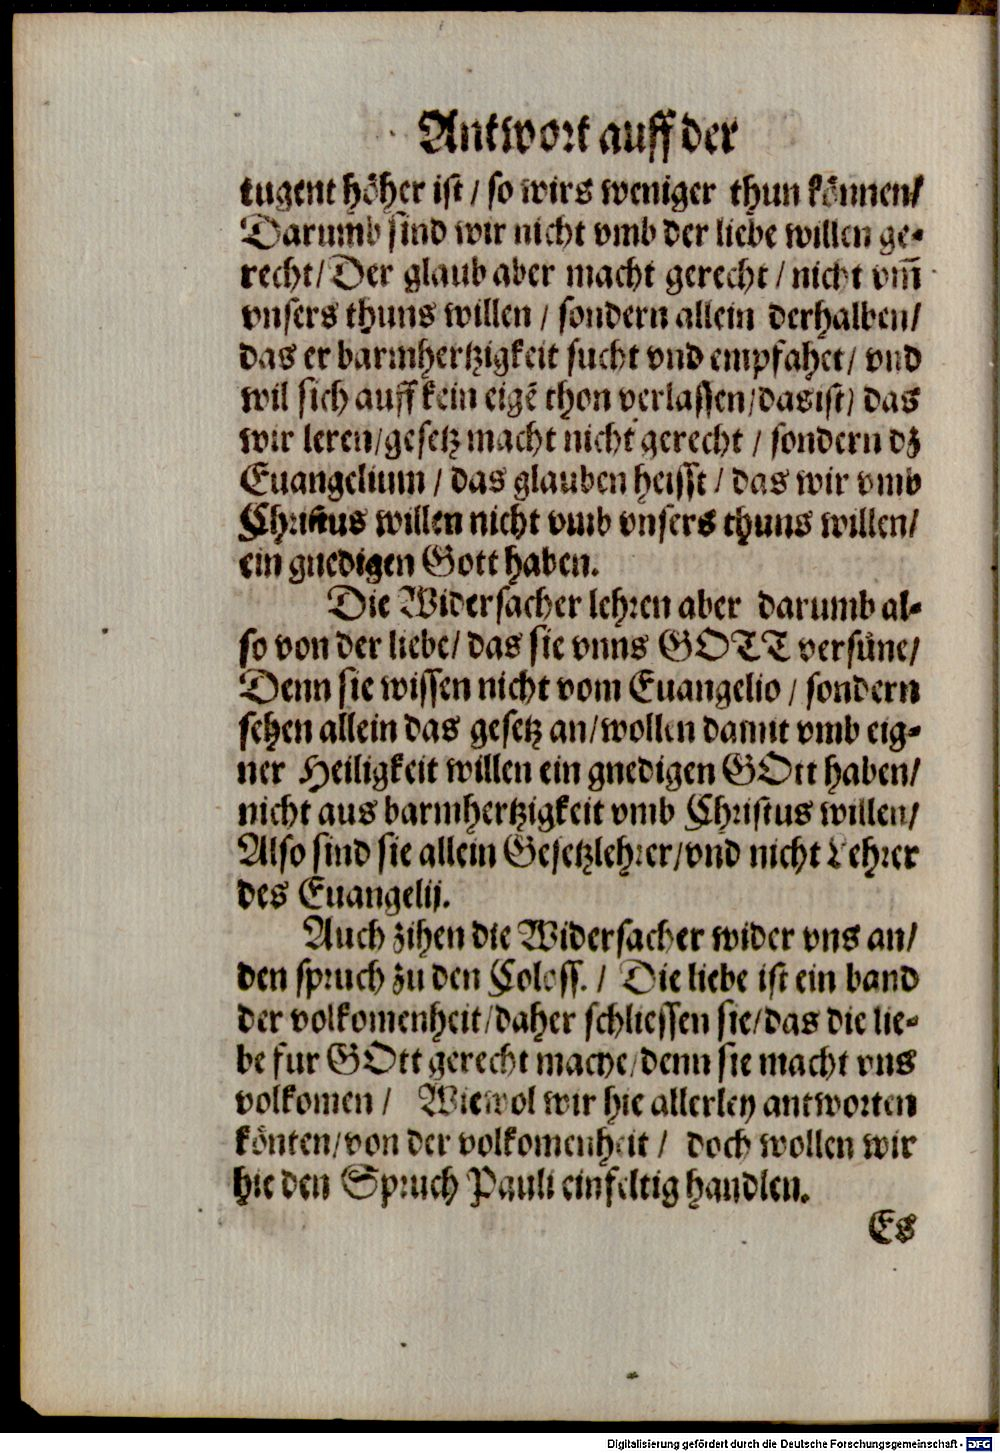 Antwort auff der
tugent höher ist / so wirs weniger thun können/
Darumb sind wir nicht vmb der liebe willen ge-
recht/Der glaub aber macht gerecht / nicht vm̃
vnsers thuns willen / sondern allein derhalben/
das er barmhertzigkeit sucht vnd empfahet/ vnd
wil sich auff kein eigẽ thon verlassen/das ist/ das
wir leren/gesetz macht nicht gerecht / sondern dz
Euangelium / das glauben heisst / das wir vmb
Christus willen nicht vmb vnsers thuns willen/
ein gnedigen Gott haben.
Die Widersacher lehren aber darumb al-
so von der liebe/ das sie vnns GOTT versüne/
Denn sie wissen nicht vom Euangelio / sondern
sehen allein das gesetz an/wollen damit vmb eig-
ner Heiligkeit willen ein gnedigen GOtt haben/
nicht aus barmhertzigkeit vmb Christus willen/
Also sind sie allein Gesetzlehrer/vnd nicht Lehrer
des Euangelij.
Auch zihen die Widersacher wider vns an/
den spruch zu den Coloss. / Die liebe ist ein band
der volkomenheit/daher schliessen sie/das die lie-
be fur GOtt gerecht mache/denn sie macht vns
volkomen / Wiewol wir hie allerley antworten
könten/von der volkomenheit / doch wollen wir
hie den Spruch Pauli einfeltig handlen.
Es
Digitalisierung gefördert durch die Deutsche Forschungsgemeinschaft - DFG